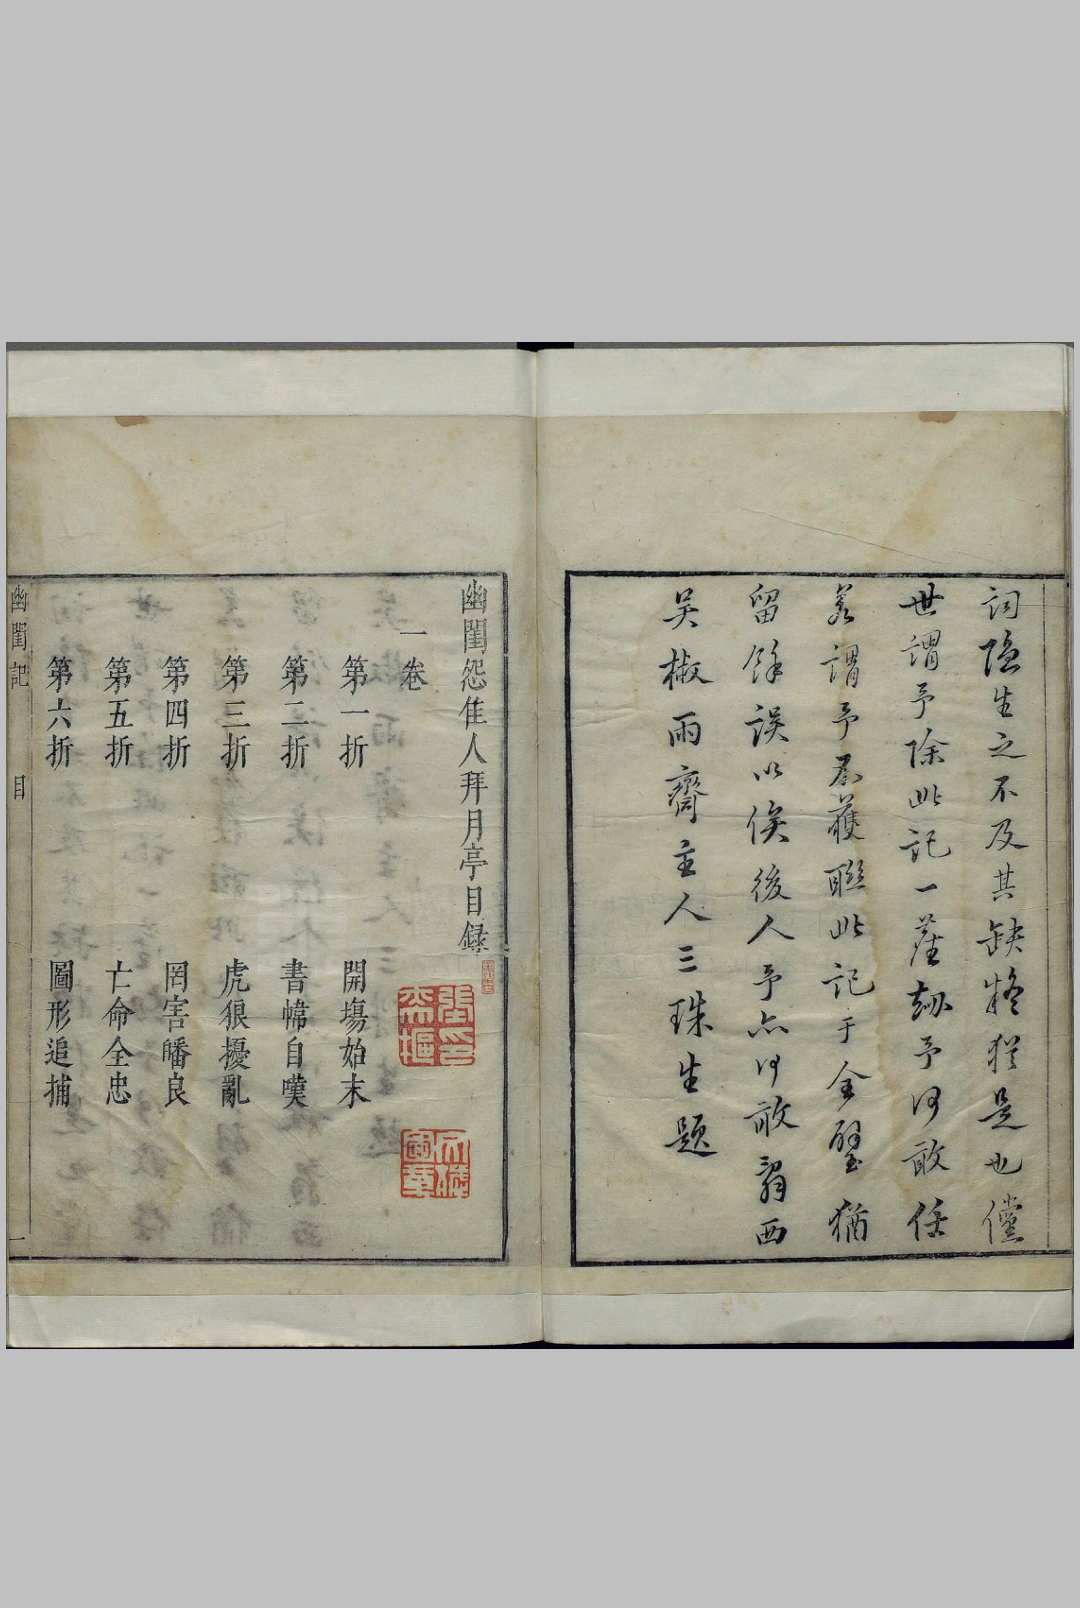 詞隐生之不及其缺疑猶是也儻
世謂予除此記一塵劫予何敢任
若謂予不獲聯此記于全璧猶
留餘誤以俟後人予亦何敢翕西
吴椒雨齋主人三珠生題
幽閨怨佳人拜月亭目録
一卷
第一折 開場始末
第二折 書幃自嘆
第三折 虎狼擾亂
第四折 罔害皤良
第五折 亡命全忠
第六折 圖形追捕
幽閨記 目 一